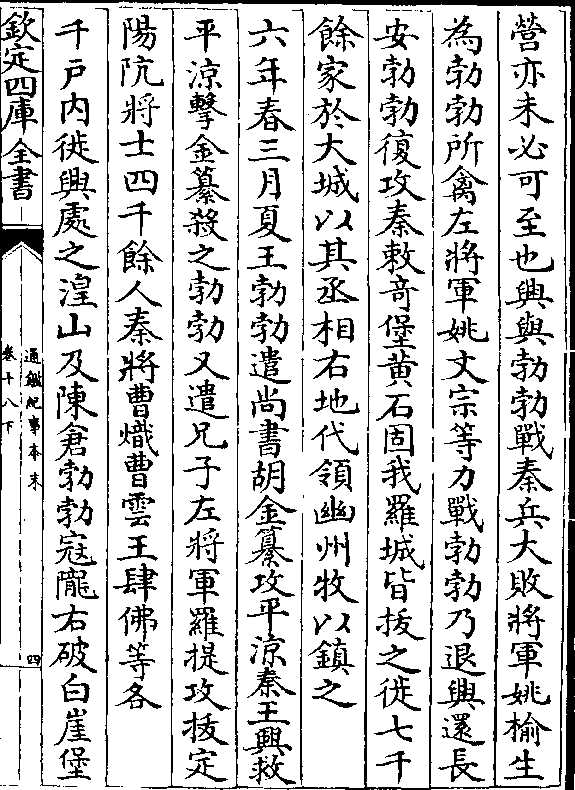 營亦未必可至也興與勃勃戰秦兵大敗將軍姚榆生
為勃勃所禽左將軍姚文宗等力戰勃勃乃退興還長
安勃勃復攻秦敕竒堡黄石固我羅城皆㧞之徙七千
餘家於大城以其丞相右地代領幽州牧以鎮之
六年春三月夏王勃勃遣尚書胡金纂攻平涼秦王興救
平涼擊金纂殺之勃勃又遣兄子左將軍羅提攻㧞定
陽阬將士四千餘人秦將曹熾曹雲王肆佛等各
千户内徙興處之湟山及陳倉勃勃冦隴右破白崖堡
欽定四庫全書
通鑑紀事本末
卷十八下
四